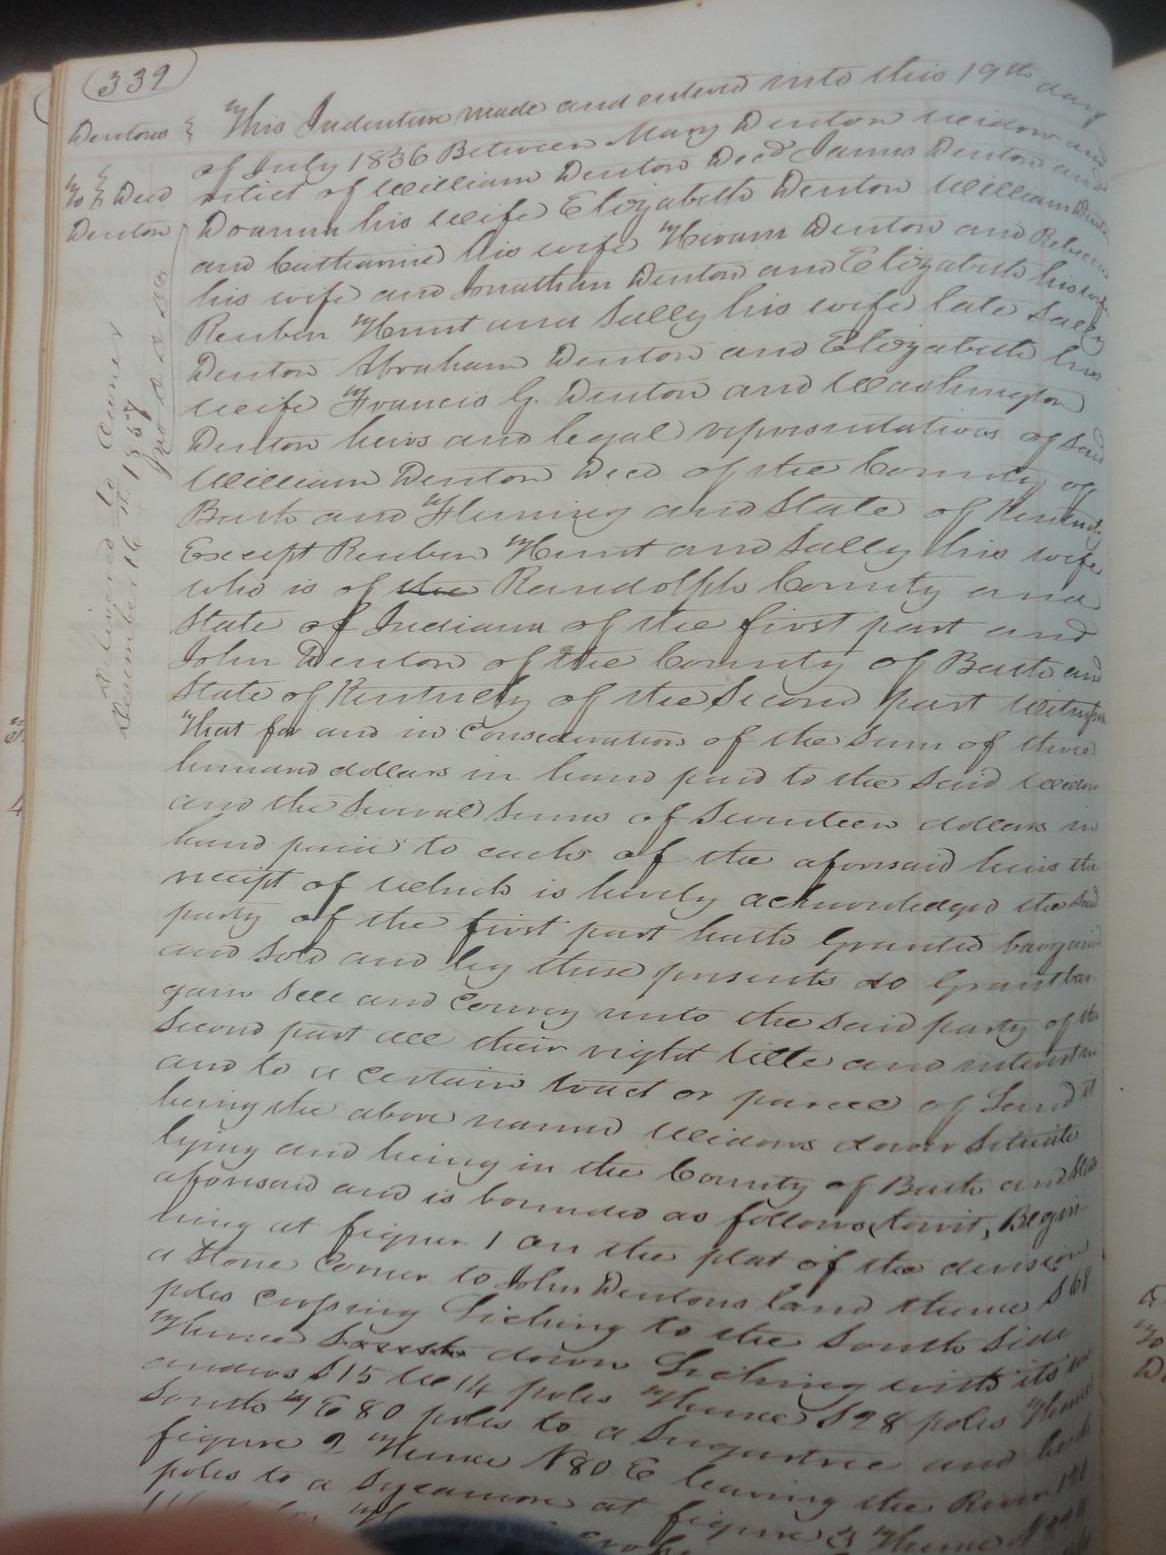 339
Dentons
To Deed
Denton
Delivered to Owner
December 16th 1857
This Indenture made and entered into this 19th day
of July 1836 Between Mary Denton Widow and
relict of William Denton Decd James Denton and
his Wife Elizabeth Denton William Denton
and Catharine his wife Hiram Denton and Rebecca
his wife and Jonathan Denton and Elizabeth his wife
Reuben Hunt and Sally his wife late Sally
Denton Abraham Denton and Elizabeth his
Wife Francis G. Denton and Washington
Denton heirs and legal representatives of said
William Denton Decd of the County of
Bath and Fleming and State of Kentucky
Except Reuben Hunt and Sally his wife
who is of the Randolph County and
State of Indiana of the first part and
John Denton of the County of Bath and
State of Kentucky of the Second part Witnesseth
That for and in Consideration of the Sum of three
hundred dollars in hand paid to the Said Widow
and the Several Sums of Seventeen dollars in
hand paid to each of the aforesaid heirs the
receipt of which is hereby acknowledged the Said
party of the first part hath Granted bargained
and Sold and by these presents do Grant bar
gain Sell and Convey unto the Said party of the
Second part all their right title and interest in
and to a certain tract or parcel of Land it
being the above named Widows dower Situate
lying and being in the County of Bath and State
aforesaid and is bounded as follows, towit, Begin
ning at figure 1 on the plat of the devision
a Stone Corner to John Dentons land thence S 68
poles crossing Licking to the South Side
Thence South down Licking with its
S 15 W 14 poles Thence S 28 poles Thence
South 7 E 80 poles to a Sugartree and
figure 2 Thence N 80 E leaving the River 121
poles to a Sycamore at figure 3 Thence N